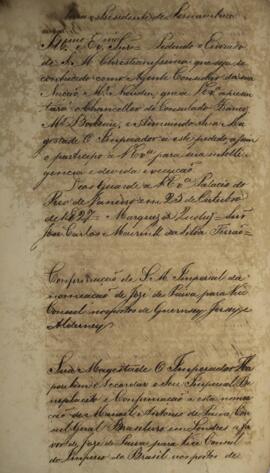 Para o Presidente de Pernambuco
Illmo e Exmo Snr Pedindo o Enviado
de S. M. Christianissima que seja re
conhecido como Agente Consular da sua
Nação Mr. que a V. Exa apresen
tará o Chanceller do Consulado Francez
Mr. e Annuindo Sua Ma
gestade O Imperador a este pedido, assim
o participo a V. Exa para sua intelli
gencia e devida execução
Deos Guarde a V. Exa Palacio do
Rio de Janeiro em 25 de Outubro
de 1827 = Marquez de Queluz = Snr
José Carlos Mairink da Silva Ferrão =
Confirmação de S. M. Imperial da
nomeação de José de Paiva para Vice
Consul nos portos de Guernsey Jersey e
Alderney
Sua Magestade O Imperador Ha
por bem Accordar o Seu Imperial Be
neplacito e Confirmação a esta nomea
ção de Manoel Antonio de Paiva Con
sul Geral Brasileiro em Londres a fa
vor de José de Paiva para Vice Consul
do Imperio do Brasil nos portos de